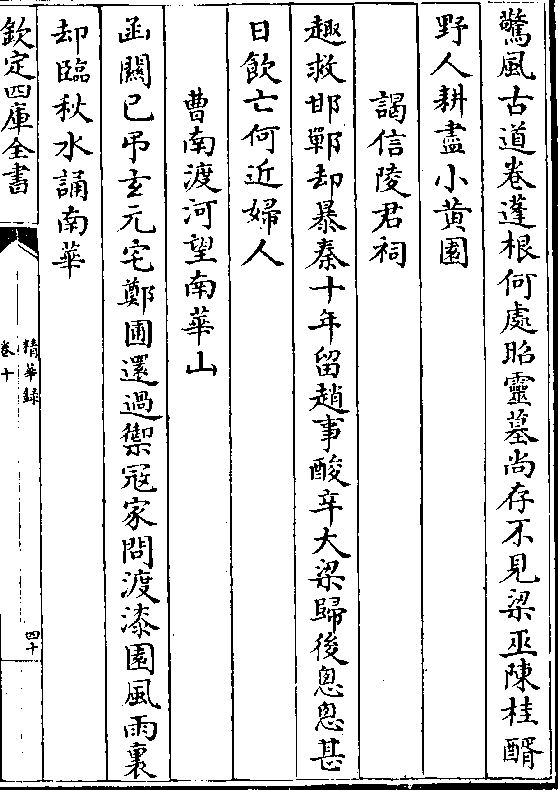 驚風古道卷蓬根何處昭靈墓尚存不見梁巫陳桂醑
野人耕盡小黄園
謁信陵君祠
趣救邯鄲却暴秦十年留趙事酸辛大梁歸後悤悤甚
日飲亡何近婦人
曹南渡河望南華山
函關已弔玄元宅鄭圃還過禦冦家問渡漆園風雨裏
却臨秋水誦南華
欽定四庫全書
精華録
卷十
四十